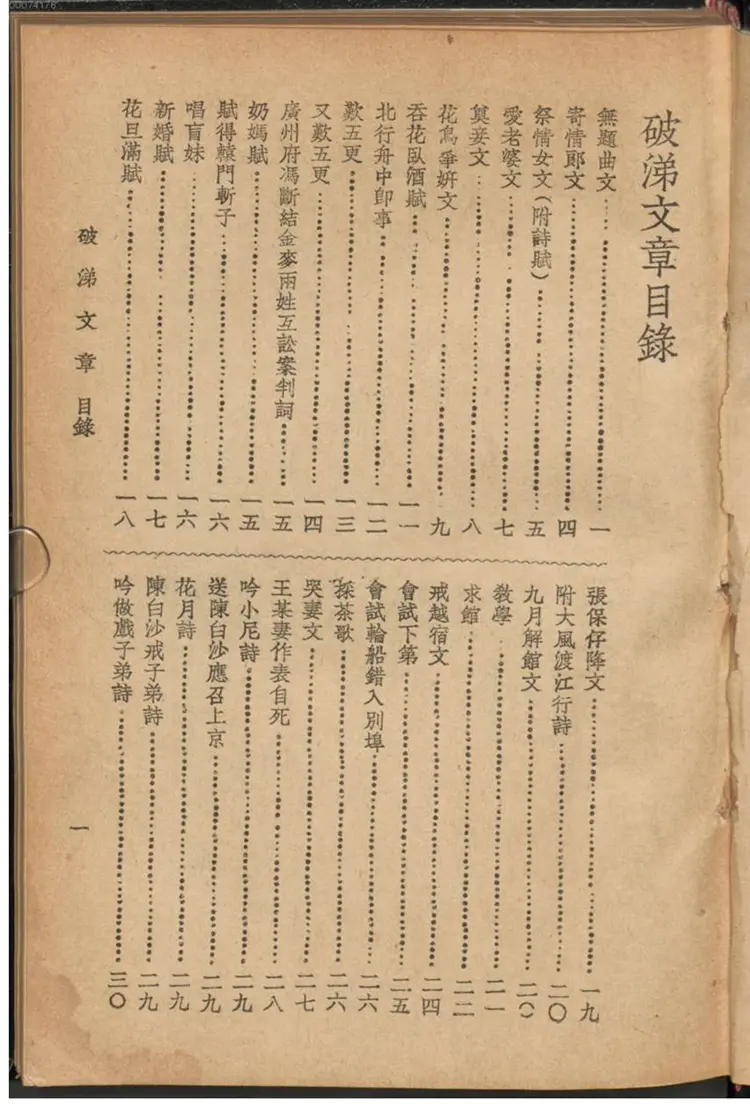 破涕文章目錄
無題曲文⋯⋯一
寄情郎文⋯⋯四
祭情女文(附詩賦)⋯⋯五
愛老婆文⋯⋯七
奠妾文⋯⋯八
花鳥爭姸文⋯⋯九
吞花臥酒賦⋯⋯一一
北行舟中卽事⋯⋯一二
歎五更⋯⋯一三
又歎五更⋯⋯一四
廣州府馮斷結金麥兩姓互訟案判詞⋯⋯一五
奶媽賦⋯⋯一五
賦得轅門斬子⋯⋯一六
唱盲妹⋯⋯一六
新婚賦⋯⋯一七
花旦滿賦⋯⋯一八
張保仔降文⋯⋯一九
附大風渡江行詩⋯⋯二〇
九月解館文⋯⋯二〇
敎學⋯⋯二一
求館⋯⋯二二
戒越宿文⋯⋯二四
會試下第⋯⋯二五
會試輪船錯入別埠⋯⋯二六
採茶歌⋯⋯二六
哭妻文⋯⋯二七
王某妻作表自死⋯⋯二八
吟小尼詩⋯⋯二九
送陳白沙應召上京⋯⋯二九
花月詩⋯⋯二九
陳白沙戒子弟詩⋯⋯二九
吟做戲子弟詩⋯⋯三〇
破涕文章 目錄
一
30074176